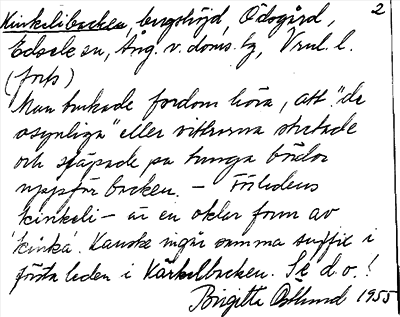 2
Kinkelibacken, bergshöjd, Ödsgård,
Edsele sn, Ång. v. doms. tg, Vnl. l.
(forts)
Man brukade fordom höra, att "de
osynliga" eller vittrorna stretade
och släpade på tunga bördor
uppför backen. – Förledens
kinkeli – är en okler form av
'kinka'. Kanske ingår samma suffix i
första leden i Kärkelbacken. Se d.o.!
Birgitta Östlund 1955